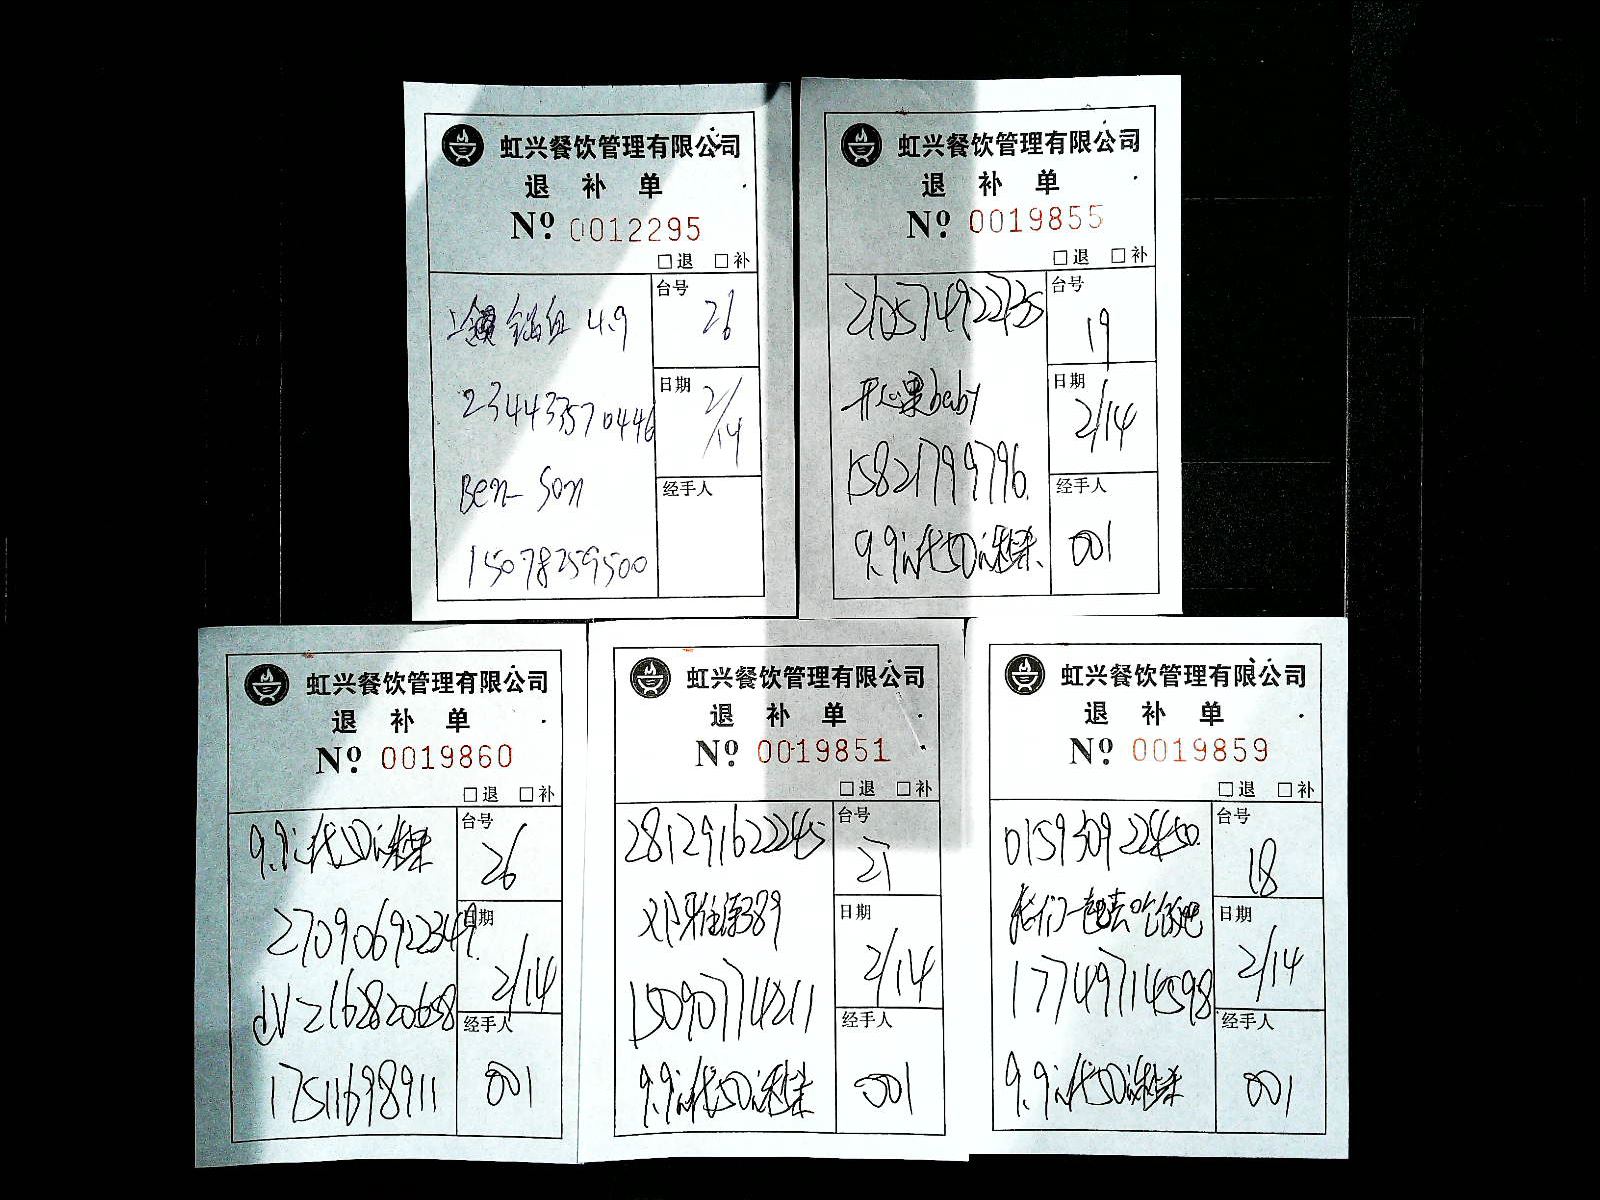 虹兴餐饮管理有限公司
退 补 单
Nº. 0012295
□退 □补
4.9
台号
26
234433570446
日期
2/14
Ben- Son
经手人
15078259500
虹兴餐饮管理有限公司
退 补 单
Nº. 0019855
□退 □补
210574922735
台号
19
开心果baby
日期
2/14
15821799796
经手人
9.9 代50
001
虹兴餐饮管理有限公司
退 补 单
Nº. 0019860
□退 □补
9.9 代50
台号
26
270906922349
日期
2/14
dV2162820658
经手人
17511698911
001
虹兴餐饮管理有限公司
退 补 单
Nº. 0019851
□退 □补
281291622245
台号
21
389
日期
2/14
15090774211
经手人
9.9 代50
001
虹兴餐饮管理有限公司
退 补 单
Nº. 0019859
□退 □补
015930922450
台号
18
我们一起去吃饭吧
日期
2/14
17749714598
经手人
9.9 代50
001